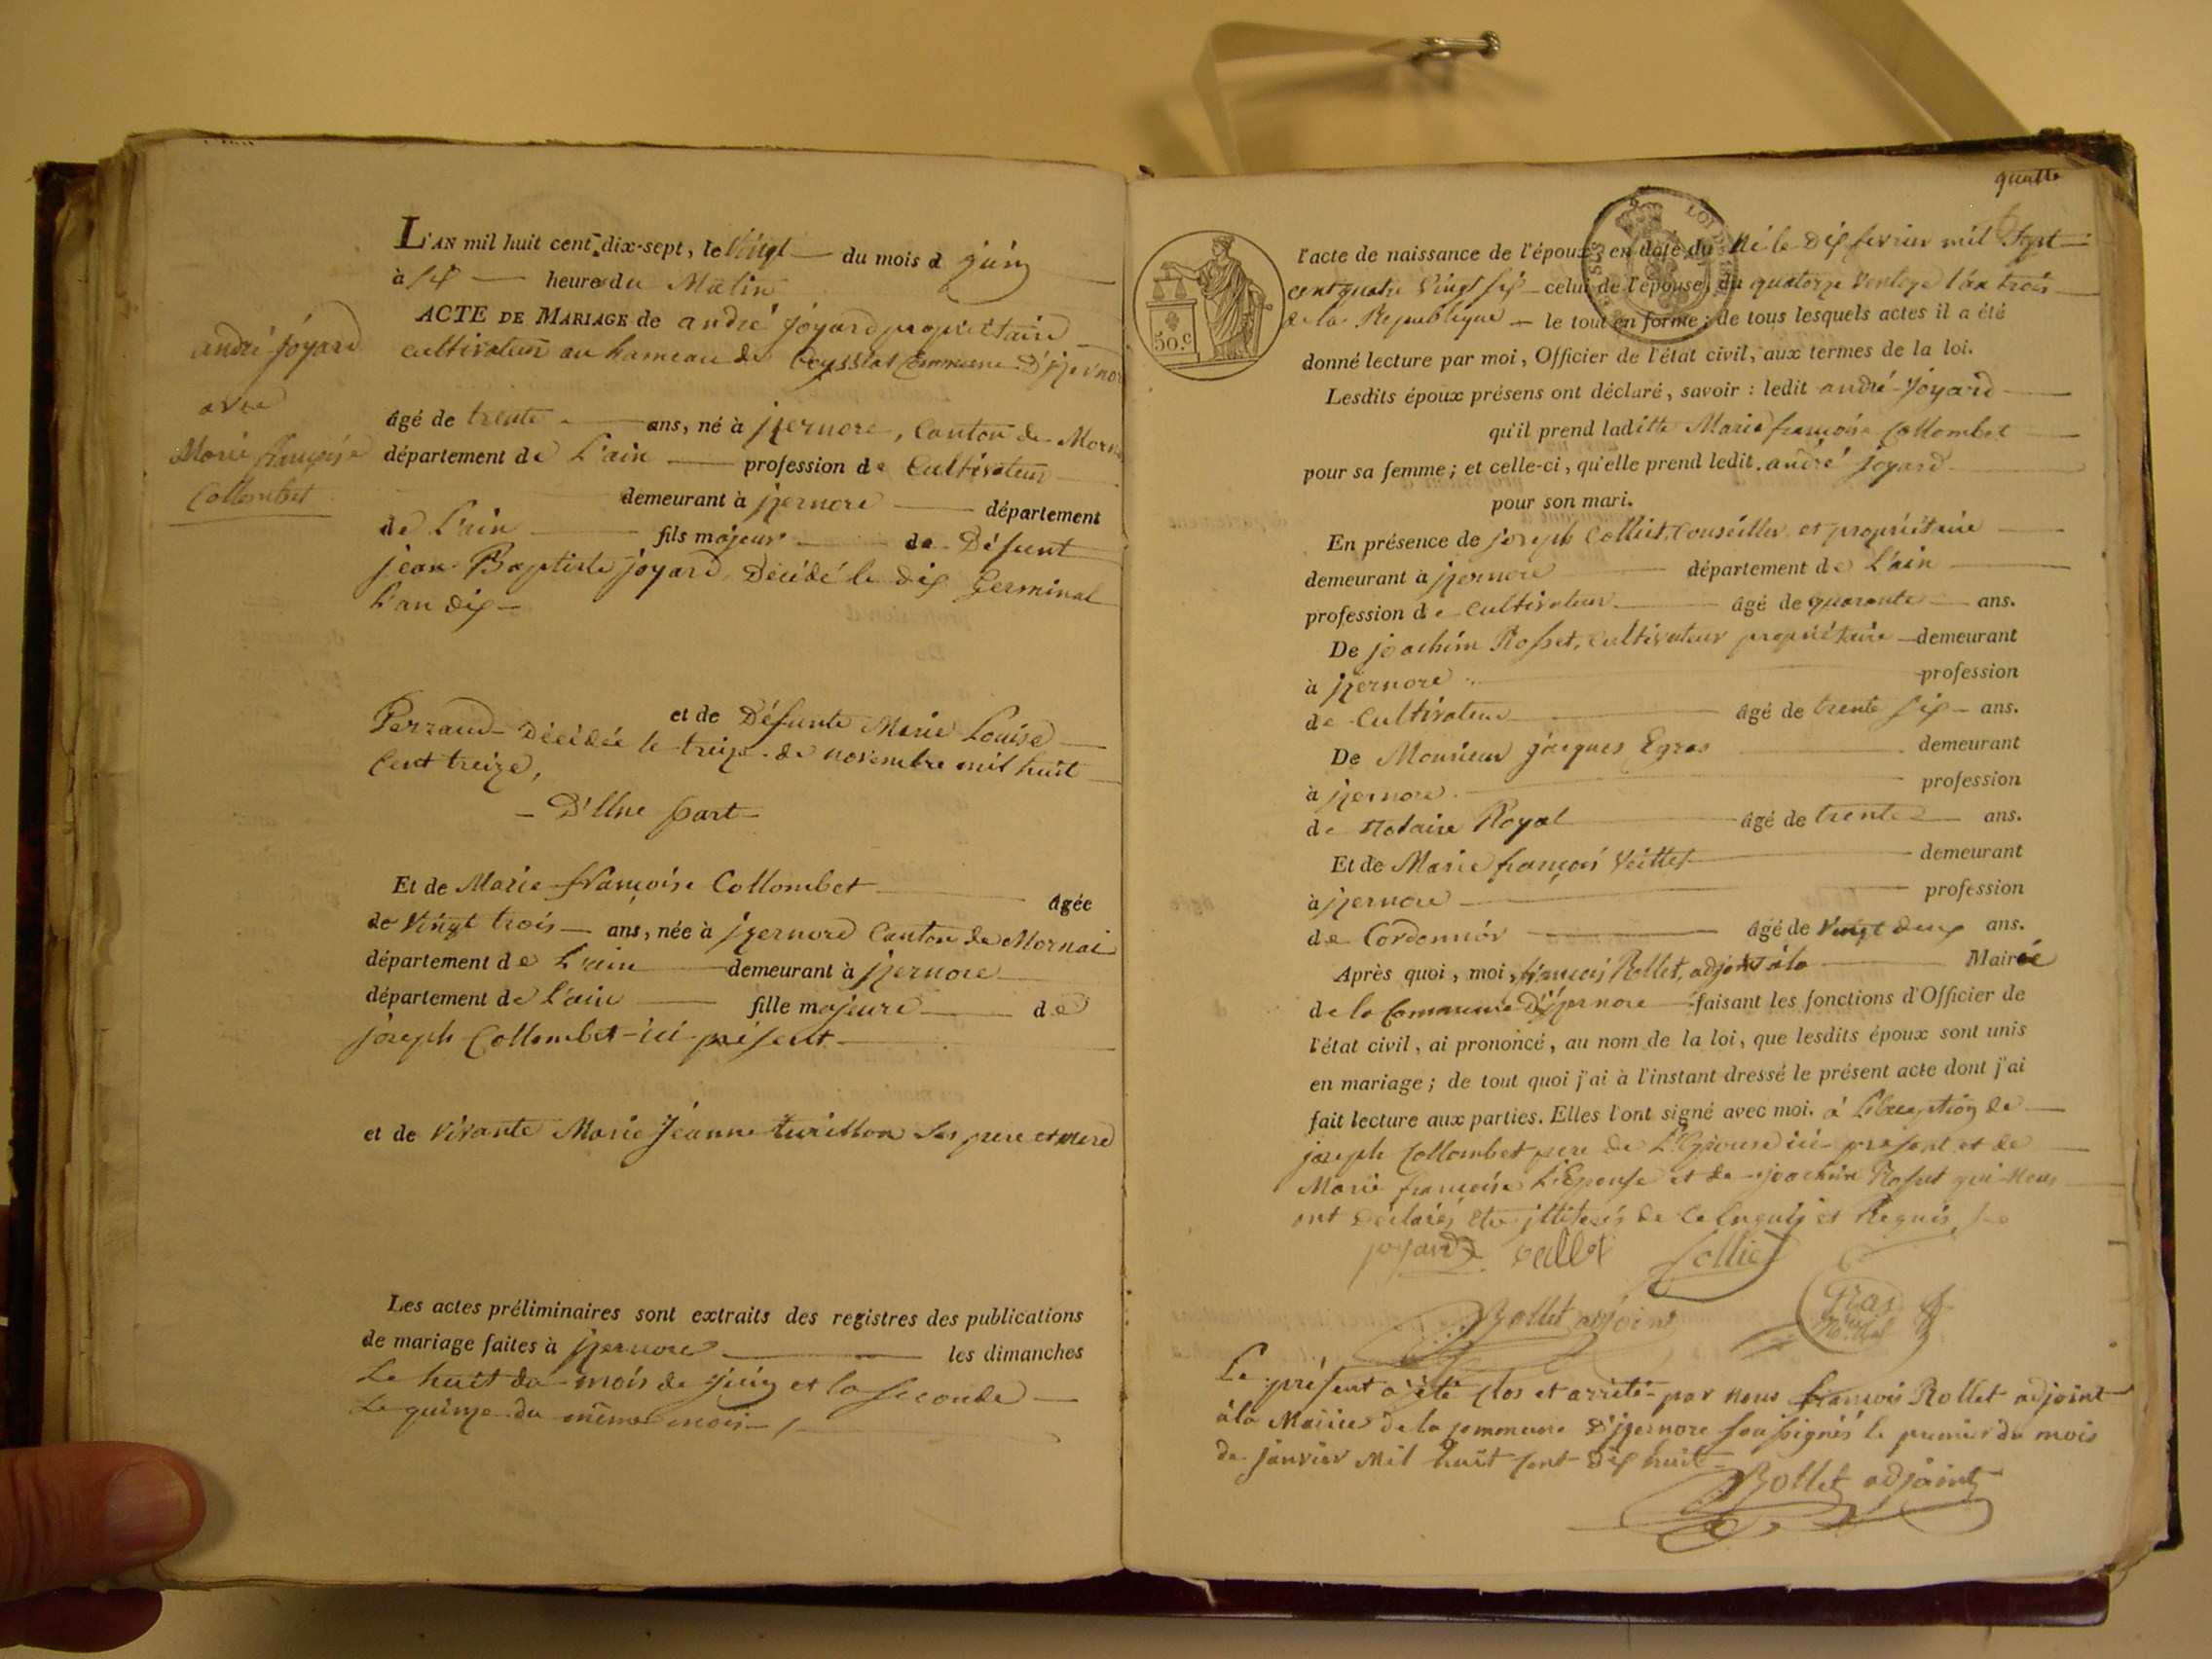 L'AN mil huit cent dix-sept, le Vingt du mois d juin
à heure du Matin
ACTE DE MARIAGE de andré joyard propriétaire
cultivateur au hameau de Ceyssiat Commune D'jzernore
andré joyard
avec
Marie françoise
Collombet
âgé de trente ans, né à jzernore, Canton de Morn
département de L'ain profession de Cultivateur
demeurant à jzernore département
de L'ain fils majeur de Défunt
jean Baptiste joyard, Décédé le dix Germinal
L'an dix
et de Défunte Marie Louise
Perraud Décédée le treize de novembre mil huit
Cent treize,
D'Une part
Et de Marie françoise Collombet âgée
de Vingt trois ans, née à jzernore Canton de Mornai
département de L'ain demeurant à jzernore
département de L'ain fille majeure de
joseph Collombet ici présent
et de Vivante Marie Jeanne turillon Ses pere et mere
Les actes préliminaires sont extraits des registres des publications
de mariage faites à jzernore les dimanches
Le huit du mois de juin et la Seconde
Le quinze du même mois
quatre
50.c
l'acte de naissance de l'époux, en date du Né le Dix fevrier mil Sept
cent quatre Vingt Sept celui de l'épouse, du quatorze Ventoze l'an trois
de la Republique le tout en forme; de tous lesquels actes il a été
donné lecture par moi, Officier de l'état civil, aux termes de la loi.
Lesdits époux présens ont déclaré, savoir : ledit andré Joyard
qu'il prend laditte Marie françoise Collombet
pour sa femme; et celle-ci, qu'elle prend ledit andré joyard
pour son mari.
En présence de joseph Colliet, Conseiller et propriétaire
demeurant à jzernore département de L'ain
profession de Cultivateur âgé de quarante ans.
De joachim Rosset, Cultivateur propriétaire demeurant
à jzernore profession
de Cultivateur âgé de trente six ans.
De Monsieur jacques Egras demeurant
à jzernore profession
de Notaire Royal âgé de trente ans.
Et de Marie françois Veillet demeurant
à jzernore profession
de Cordonnier âgé de Vingt deux ans.
Après quoi, moi, françois Rollet, adjoint à la Mairie
de la Commune D'jzernore faisant les fonctions d'Officier de
l'état civil, ai prononcé, au nom de la loi, que lesdits époux sont unis
en mariage; de tout quoi j'ai à l'instant dressé le présent acte dont j'ai
fait lecture aux parties. Elles l'ont signé avec moi. à L'Exception de
joseph Collombet pere de L'Epouse ici present et de
Marie françoise L'Epouse et de joachim Rosset qui Nous
ont Déclarés Etre jllitérés de Ce Enquis et Requis
joyard vallet Collie
Rollet adjoint Gras
Le présent a été Clos et arrêté par Nous françois Rollet adjoint
à la Mairie de la Commune D'jzernore Soussignés le premier du mois
de janvier Mil huit Cent Dix huit
Rollet adjoint